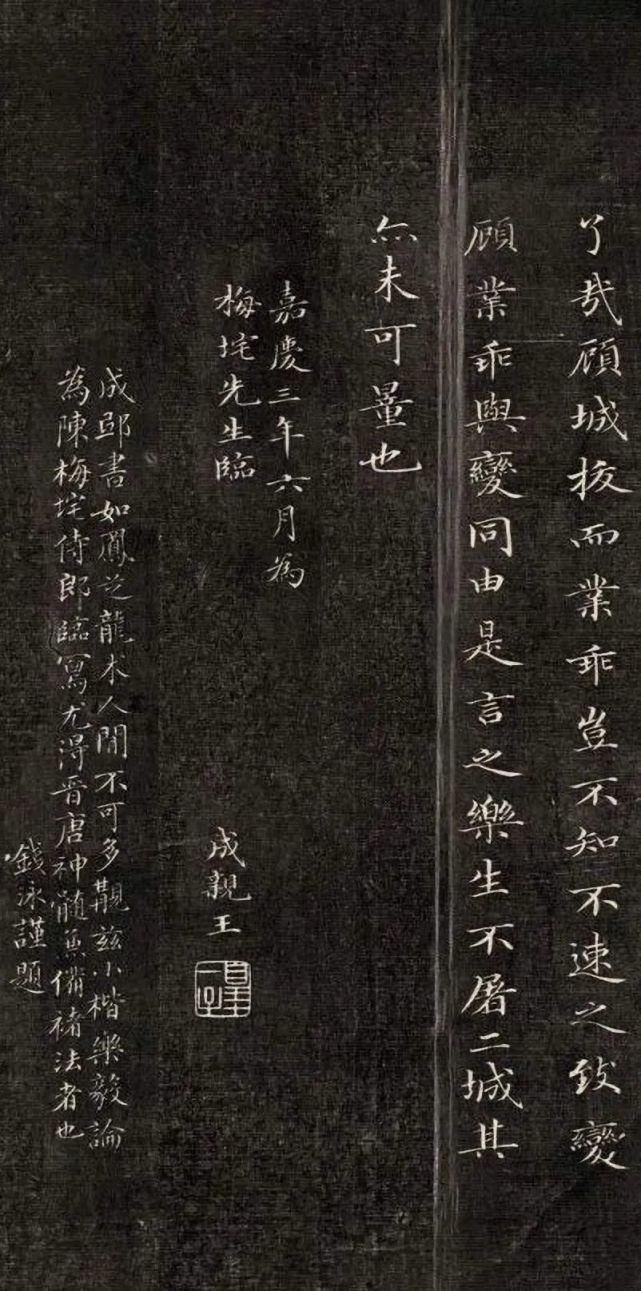 了哉顧城拔而業乖豈不知不速之致變
顧業乖與變同由是言之樂生不屠二城其
亦未可量也
嘉慶三年六月為
梅垞先生臨
成親王
皇十一子
成邸書如鳳芝龍朮人間不可多覯茲小楷樂毅論
為陳梅垞侍郎臨寫尤得晉唐神髓兼備褚法者也
錢泳謹題